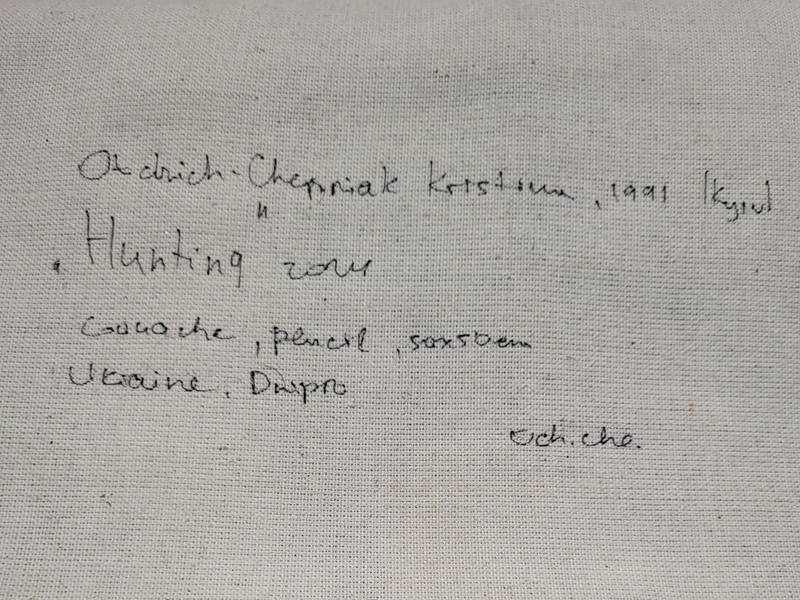 Chepniak Kristina, 1991 Kyiv
„Hunting" 2024
Gouache, pencil, 50x50cm
Ukraine, Dnipro
och.che.